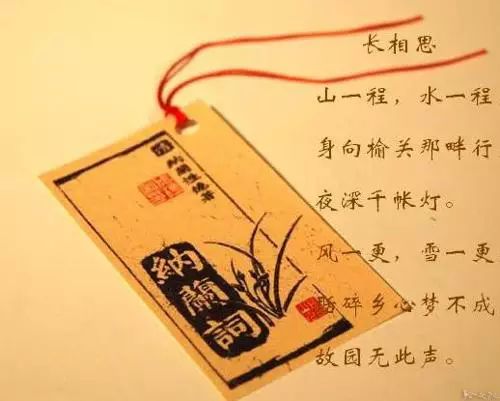 长相思
山一程，水一程
身向榆关那畔行
夜深千帐灯。
风一更，雪一更
聒碎乡心梦不成
故园无此声。
納蘭性德著
納蘭詞